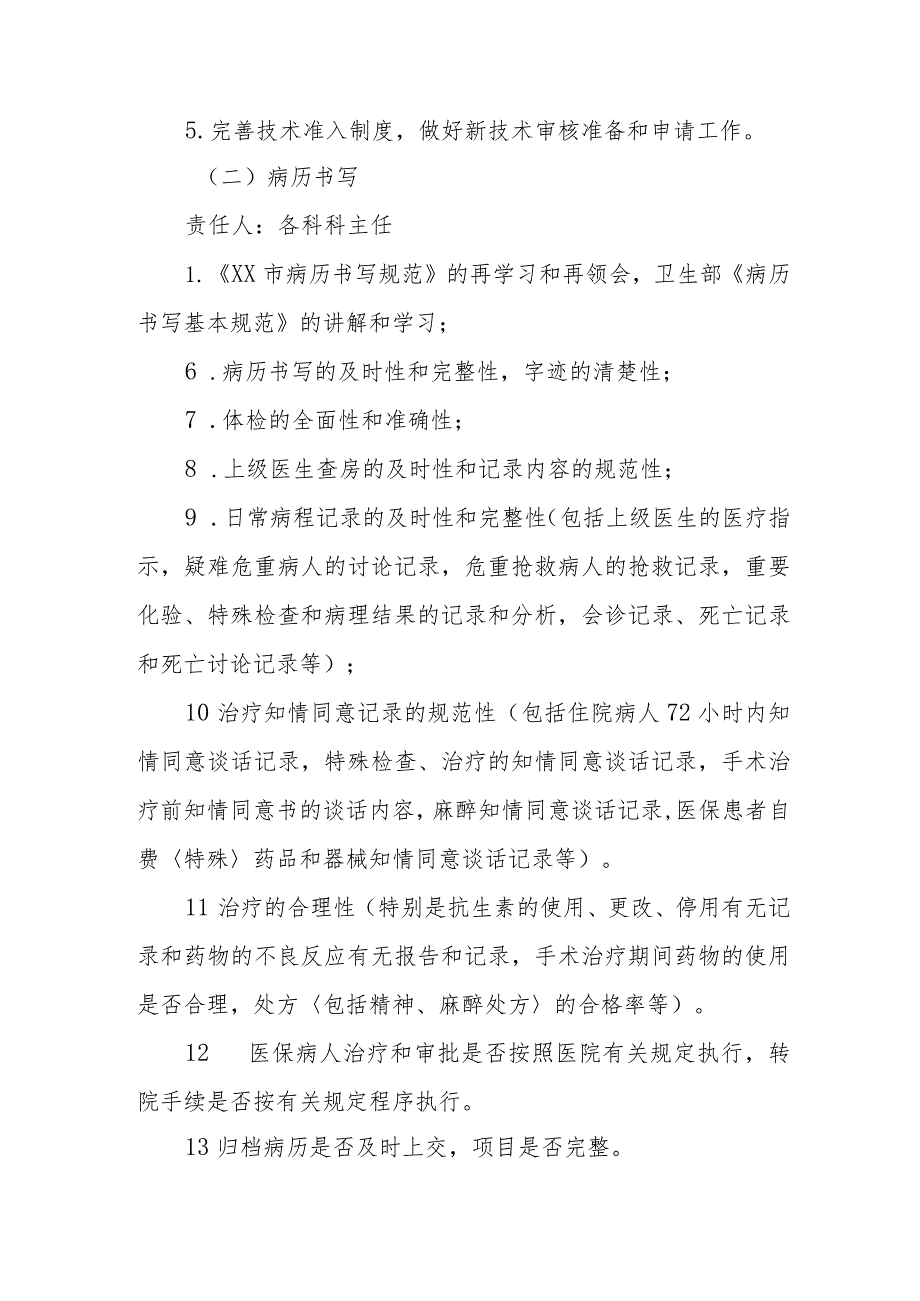 5.完善技术准入制度，做好新技术审核准备和申请工作。
（二）病历书写
责任人：各科科主任
1.《XX市病历书写规范》的再学习和再领会，卫生部《病历
书写基本规范》的讲解和学习；
6 .病历书写的及时性和完整性，字迹的清楚性；
7 .体检的全面性和准确性；
8 .上级医生查房的及时性和记录内容的规范性；
9 .日常病程记录的及时性和完整性(包括上级医生的医疗指
示，疑难危重病人的讨论记录，危重抢救病人的抢救记录，重要
化验、特殊检查和病理结果的记录和分析，会诊记录、死亡记录
和死亡讨论记录等）;
10 治疗知情同意记录的规范性（包括住院病人72小时内知
情同意谈话记录，特殊检查、治疗的知情同意谈话记录，手术治
疗前知情同意书的谈话内容，麻醉知情同意谈话记录,医保患者自
费〈特殊〉药品和器械知情同意谈话记录等）。
11 治疗的合理性（特别是抗生素的使用、更改、停用有无记
录和药物的不良反应有无报告和记录，手术治疗期间药物的使用
是否合理，处方〈包括精神、麻醉处方〉的合格率等）。
12 医保病人治疗和审批是否按照医院有关规定执行，转
院手续是否按有关规定程序执行。
13 归档病历是否及时上交，项目是否完整。